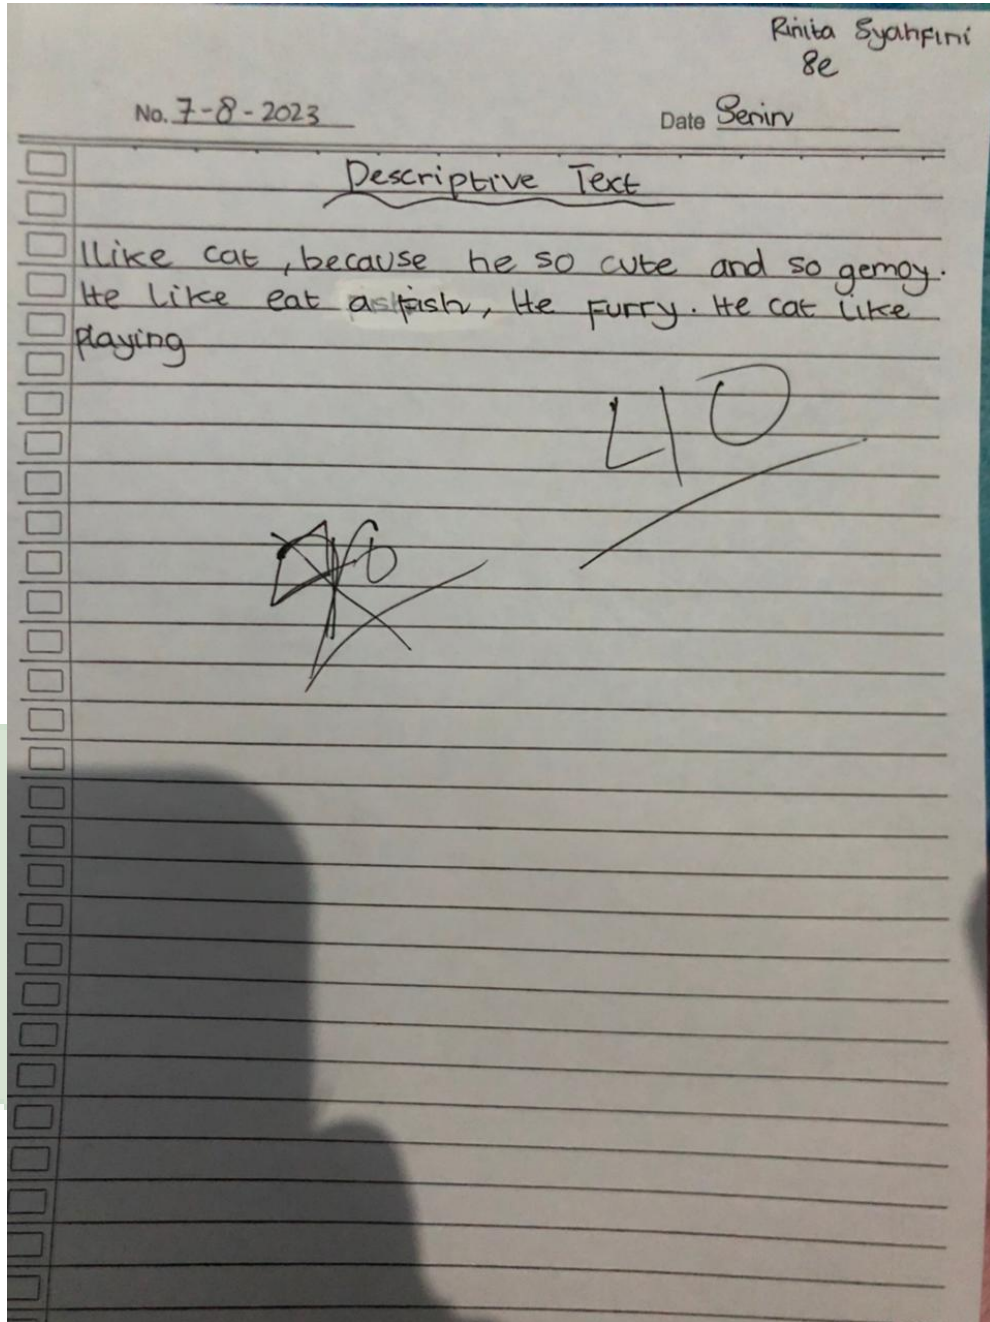 Rinita Syahfini
8e
No. 7-8-2023
Date Senin
Descriptive Text
I like cat, because he so cute and so gemoy.
He like eat fish, He Furry. He cat like
playing
40